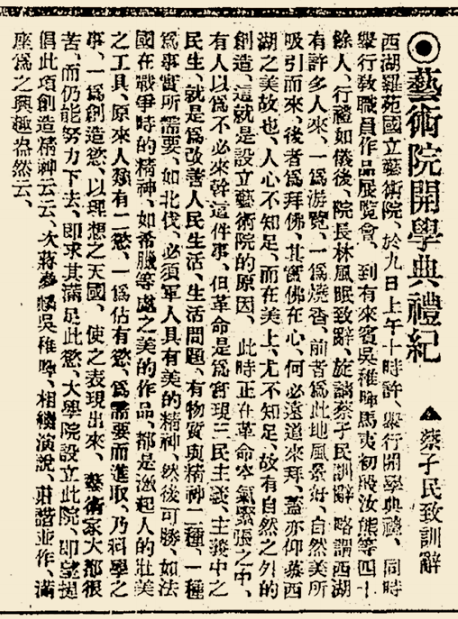 ◉藝術院開學典禮紀　▲蔡孑民致訓辭
西湖羅苑國立藝術院、於九日上午十時許、舉行開學典禮、同時
舉行敎職員作品展覽會、到有來賓吳稚暉馬夷初殷汝熊等四十
餘人、行禮如儀後、院長林風眠致辭、旋請蔡孑民訓辭、略謂西湖
有許多人來、一爲游覽、一爲燒香、前者爲此地風景好、自然美所
吸引而來、後者爲拜佛、其實佛在心、何必遠道來拜、蓋亦仰慕西
湖之美故也、人心不知足、而在美上、尤不知足、故有自然之外的
創造、這就是設立藝術院的原因、此時正在革命空氣緊張之中、
有人以爲不必來幹這件事、但革命是爲實現三民主義、主義中之
民生、就是爲改善人民生活、生活問題、有物質與精神二種、一種
爲事實所需要、如北伐、必須軍人具有美的精神、然後可勝、如法
國在戰爭時的精神、如希臘等處之美的作品、都是激起人的壯美
之工具、原來人類有二慾、一爲佔有慾、爲需要而進取、乃科學之
事、一爲創造慾、以理想之天國、使之表現出來、藝術家大都很
苦、而仍能努力下去、卽求其滿足此慾、大學院設立此院、卽望提
倡此項創造精神云云、次蔣夢麟吳稚暉、相繼演說、莊諧並作、滿
座爲之興趣盎然云、